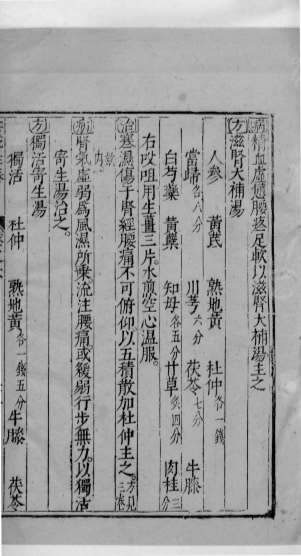 病精血虛憊腰痠足軟以滋腎大補湯主之
方滋腎大補湯
人參 黃芪 熟地黃 杜仲各一錢
當歸各八分 川芎六分 茯苓七分 牛膝
白芍藥 黃蘗 知母各五分 甘草炙四分 肉桂三分
右㕮咀用生薑三片水煎空心温服
治寒濕傷于腎經腰痛不可俯仰以五積散加杜仲主之方見三卷
腎氣虛弱爲風濕所乘流注腰痛或緩弱行步無力以獨活
寄生湯治之
方獨活寄生湯
獨活 杜仲 熟地黃各一錢五分 牛膝 茯苓